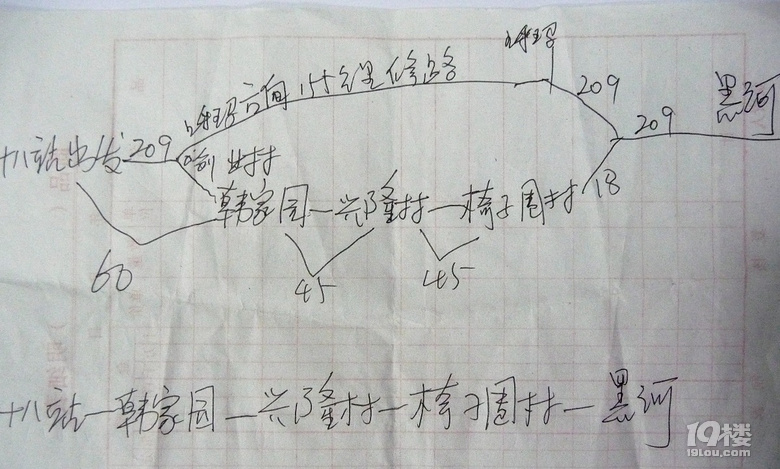 呼玛
209
呼玛方向 15公里修路
黑河
209
十八站出发 209
韩家园—兴隆村—椅子圈村
18
60
45
45
十八站—韩家园—兴隆村—椅子圈村—黑河
19楼
19lou.com